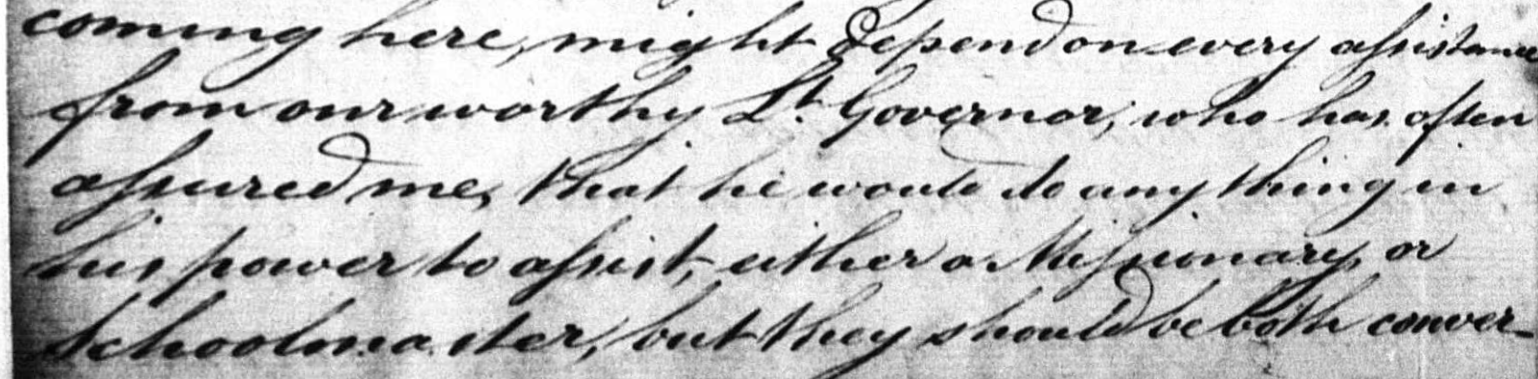 coming here, might depend on every assistance
from our worthy Lt. Governor, who has often
assured me, that he would do any thing in
his power to assist, either a Missionary, or
Schoolmaster, but they should be both conver-